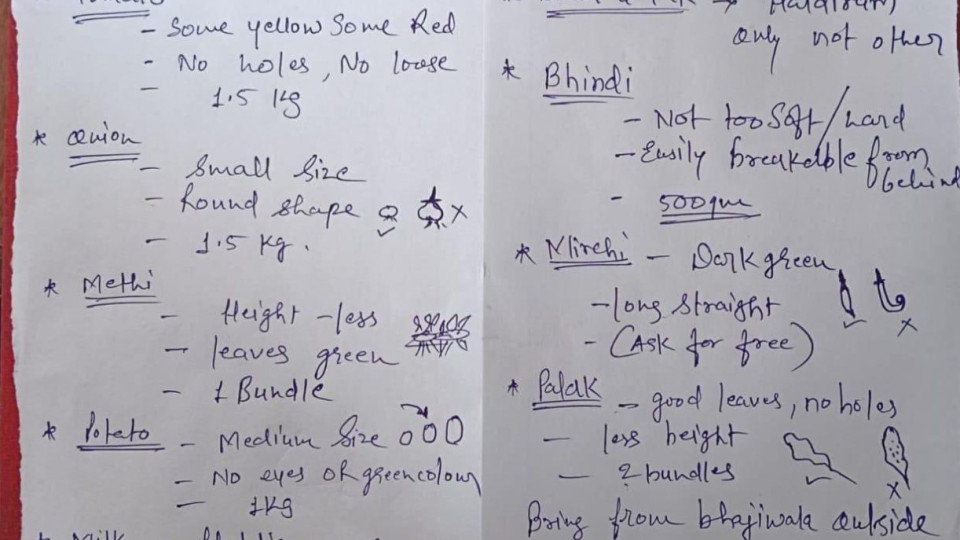 - Some yellow Some Red
- No holes, No loose
- 1.5 kg
* Onion
- Small Size
- Round shape
- 1.5 kg.
* Methi
- Height - less
- leaves green
- 1 Bundle
* Potato - Medium Size
- No eyes or green colour
- 1kg
* Milk
only not other
* Bhindi
- Not too soft/hard
- Easily breakable from behind
- 500gm
* Mirchi - Dark green
- long straight
- (Ask for free)
* Palak - good leaves, no holes
- less height
- 2 bundles
Bring from bhajiwala outside